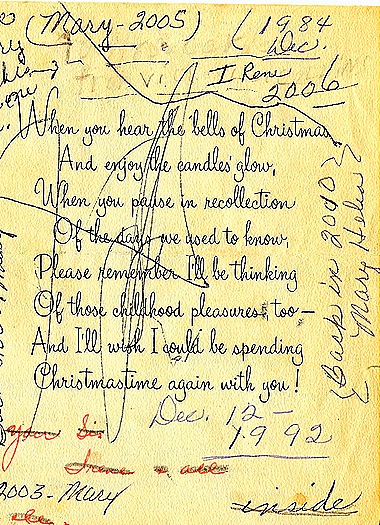 (Mary - 2005) (1984
Dec.
I Rene
2006
When you hear the bells of Christmas
And enjoy the candles' glow,
When you pause in recollection
Of the days we used to know,
Please remember I'll be thinking
Of those childhood pleasures, too—
And I'll wish I could be spending
Christmastime again with you!
(Back in 2000)
Mary Helen
Dec. 12 -
1992
your Sis
Irene & all
2003 - Mary
inside